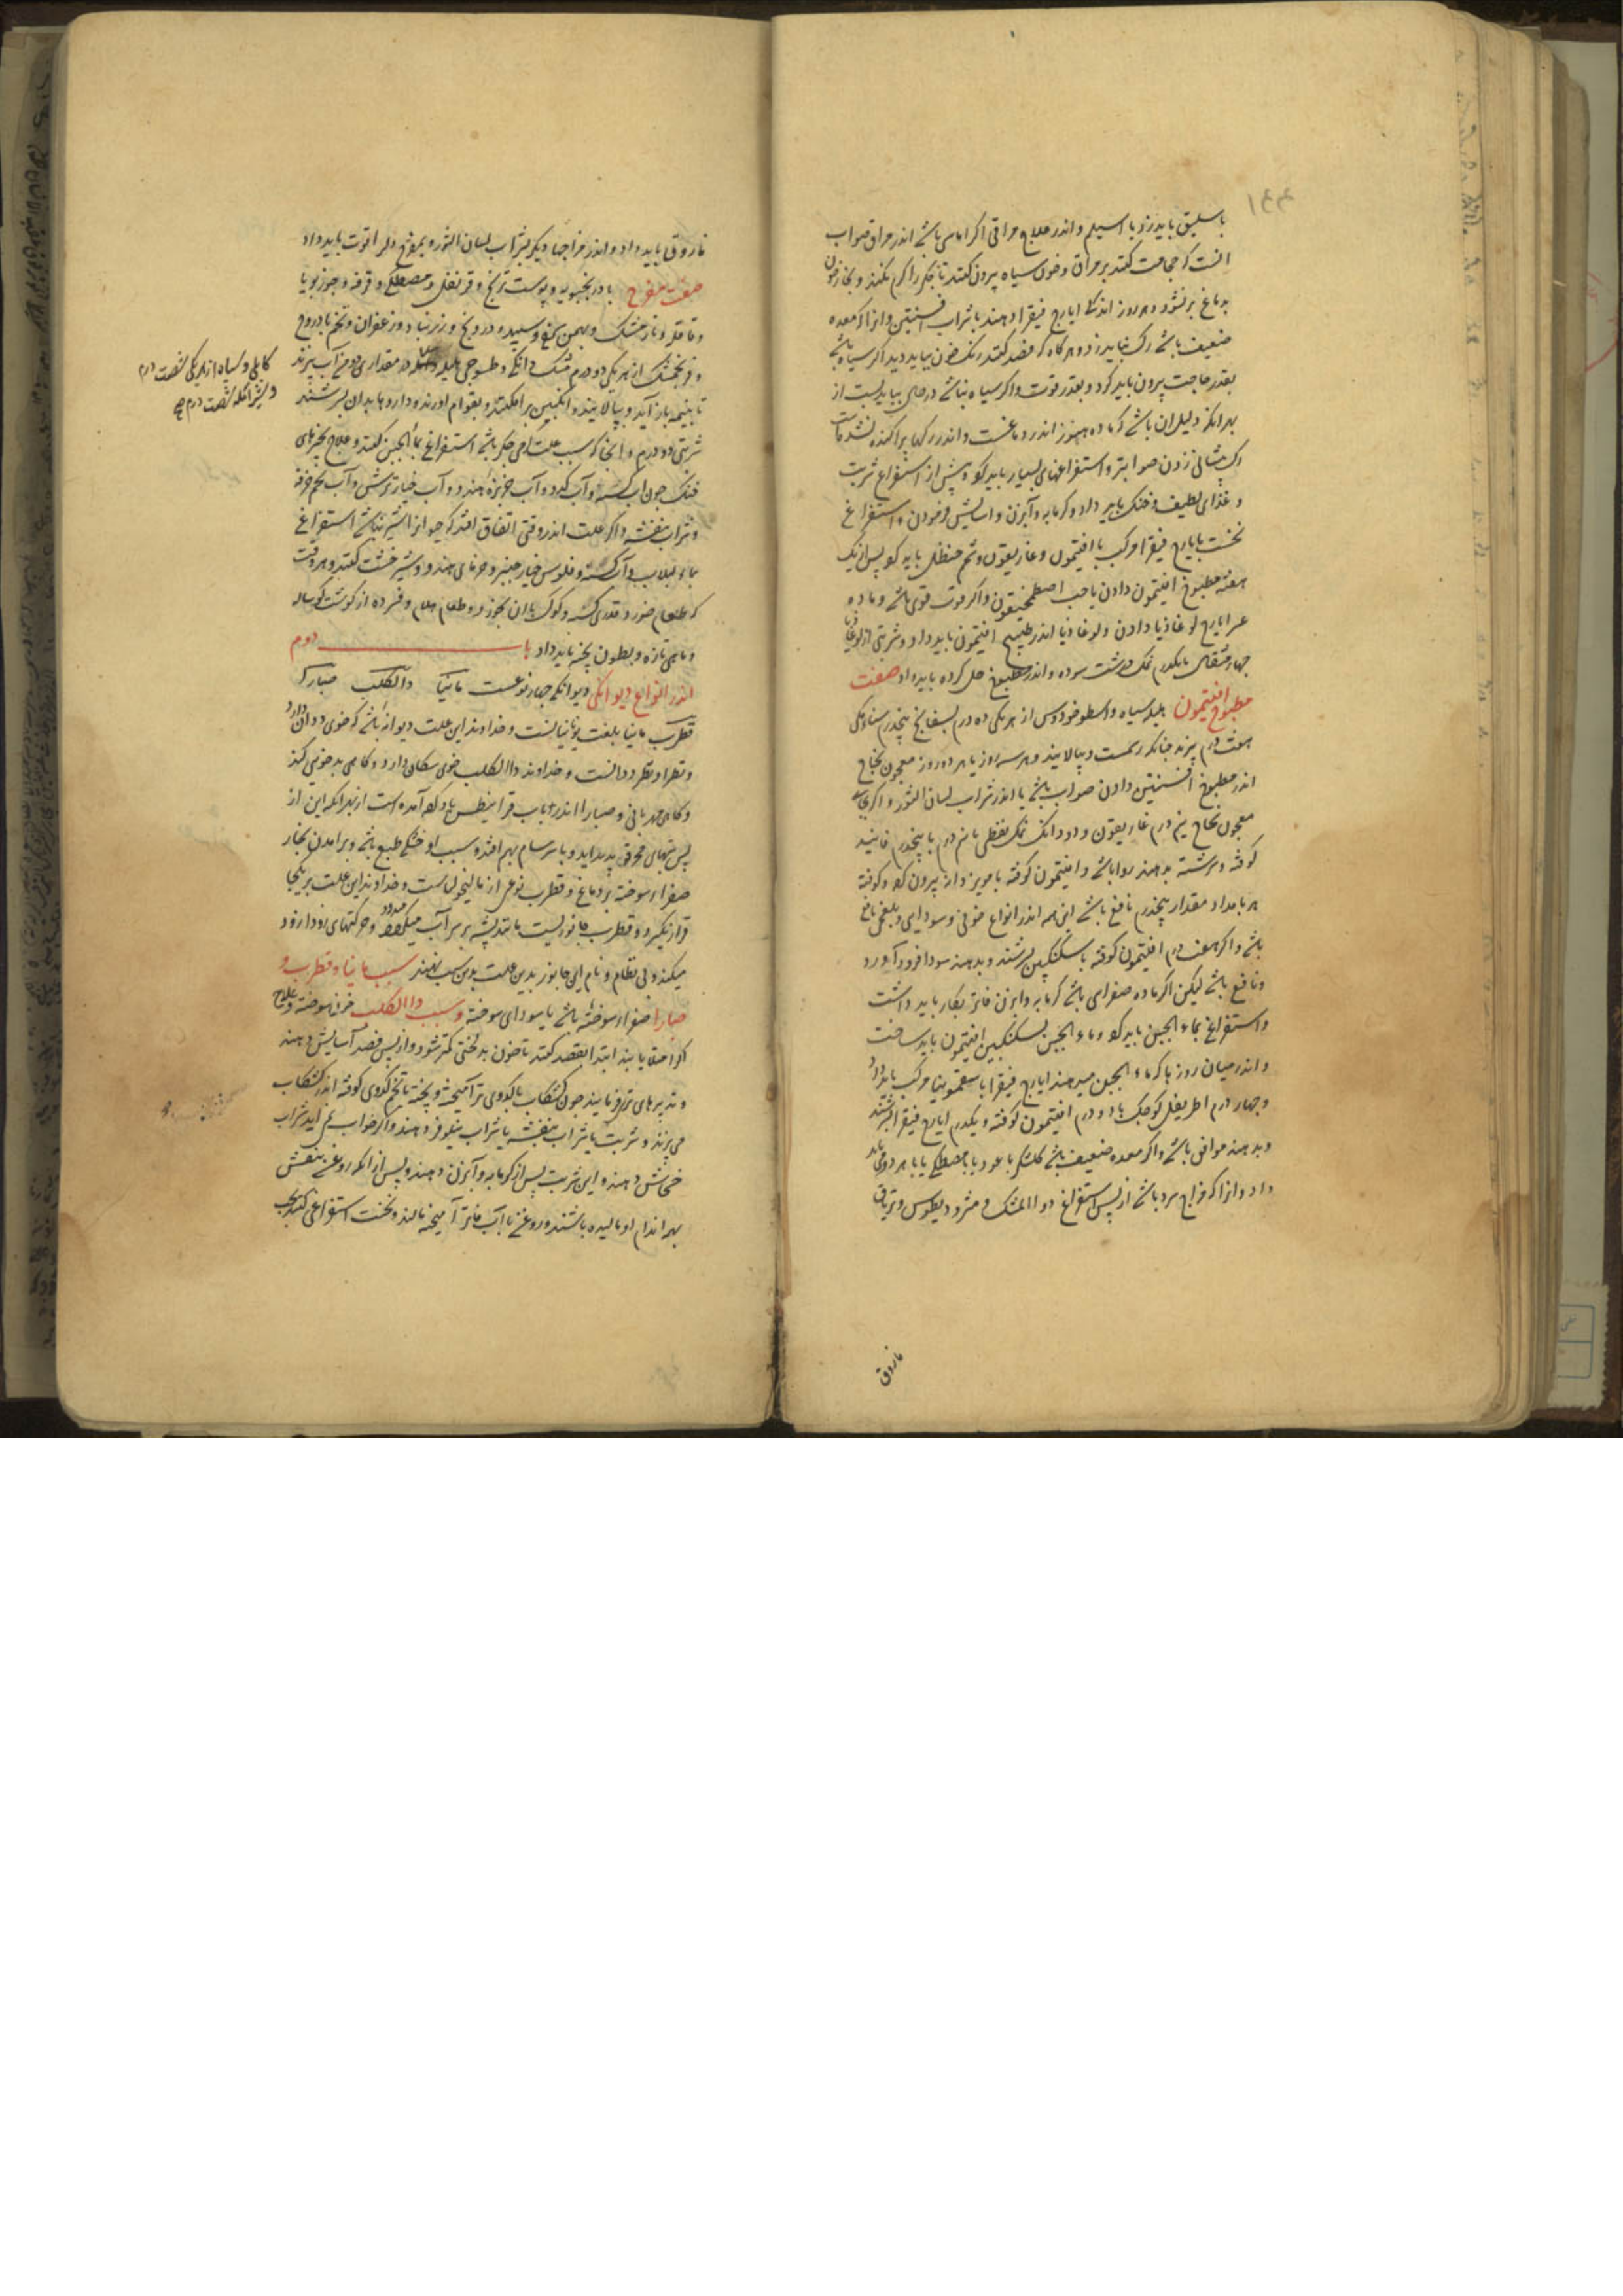 باسلیق باید زد یا اسیلم و اندر علاج مراقی اگر اماسی باشد اندر مراق صواب
انست که حجامت کنند بر مراق و خون سیاه بیرون کنند تا جگر را گرم نکند و بخار خون
بدماغ بر نشود و هر روز اندکی ایارج فیقرا دهند با شراب افسنتین و انرا که معده
ضعیف باشد رک نباید زد و هرگاه که فصد کنند رنک خون بباید دید اگر سیاه باشد
بقدر حاجت بیرون باید کرد و بقدر قوت و اگر سیاه نباشد در حال بباید بست از
بهر انکه دلیل ان باشد که ماده هنوز اندر دماغست و اندر رکها پراکنده نشده است
رک پیشانی زدن صوابتر و استفراغهای بسیار باید کرد و پیش از استفراغ شربت
و غذای لطیف و خنک باید داد و گرمابه و آبزن و اسایش فرمودن و استفراغ
نخست بایارج فیقرا مرکب با افتیمون و غاریقون و شحم حنظل باید کرد پس از یک
هفته مطبوخ افتیمون دادن یا حب اصطمخیقون و اگر قوت قوی باشد و ماده
عسر ایارج لوغاذیا دادن و لوغاذیا اندر طبیخ افتیمون باید داد و شربتی از لوغاذیا
چهار مثقال با یکدرم نمک درشت سوده و اندر مطبوخ حل کرده باید داد صفت
مطبوخ افتیمون هلیله سیاه و اسطوخودوس از هر یکی ده درم بسفایج پنجدرم سناء مکی
هفت درم بپزند چنانکه رسمست و بپالایند و هر سه روز یا هر دو روز معجون نجاح
اندر مطبوخ افسنتین دادن صواب باشد یا اندر شراب لسان الثور و اگر بجای
معجون نجاح نیم درم غاریقون و دو دانک نمک نفطی با نیم درم یا پنجدرم فانیذ
کوفته و سرشته بدهند روا باشد و افتیمون کوفته با مویز دانه بیرون کرده و کوفته
هر بامداد مقدار پنجدرم نافع باشد این همه اندر انواع خونی و سودایی و بلغمی نافع
باشد و اگر هفت درم افتیمون کوفته با سکنگبین بسرشند و بدهند سودا فرود آورد
و نافع باشد لیکن اگر ماده صفرایی باشد گرمابه و ابزن فاتر بکار باید داشت
و استفراغ بماء الجبن باید کرد و ماء الجبن بسکنگبین افتیمون باید ساخت
و اندر میان روزها که ماء الجبن میدهند ایارج فیقرا با سقمونیا مرکب باید داد
و چهار درم اطریفل کوچک با دو درم افتیمون کوفته و یکدرم ایارج فیقرا بسرشند
و بدهند موافق باشد و اگر معده ضعیف باشد گلشکر با عود یا با مصطکی یا با هر دو می باید
داد و انرا که مزاج سرد باشد از پس استفراغ دواالمشک و مثرودیطوس و تریاق
فاروق
فاروق باید داد و اندر مزاجها دیگر بشراب لسان الثور و بمفرح دلرا قوت باید داد
صفت مفرح بادرنجبویه و پوست ترنج و قرنفل و مصطکی و قرفه و جوز بویا
و قاقله و نارمشک و بهمن سرخ و سپید و درونج و زرنباد و زعفران و تخم بادروج
و فرنجمشک از هر یکی دو درم مشک دانکی و طسوجی هلیله در مقداری دو من آب بپزند
تا بنیمه باز آید و بپالایند و انگبین برافکنند و بقوام اورند و داروها بدان بسرشند
شربتی دو درم و انجا که سبب علت گرمی جگر باشد استفراغ بماء الجبن کنند و علاج بچیزهای
خنک چون اب کسنه و آب کدو و آب خربزه هندو و آب خیار ترش و آب تخم خرفه
و شراب بنفشه و اگر علت اندر وقتی اتفاق افتد که چیز از اینها نباشد استفراغ
بماء لبلاب و آب کسنه و فلوس خیار چنبر و خرمای هندو و شیر خشت کنند و هر وقت
که طعام خورد قدری کسنه و کوک با ان بخورد و طعام هلام و فسرده از گوشت گوساله
و ماهی تازه و بطون پخته باید داد باب دوم
اندر انواع دیوانگی دیوانگی چهار نوعست مانیا داالکلب صبارا
قطرب مانیا بلغت یونانیانست و خداوند این علت دیوانه باشد که خوی ددان دارد
و نظر او نظر ددانست و خداوند داالکلب خوی سکان دارد و گاهی بدخویی کند
و گاهی مهربانی و صبارا اندر باب قرانیطس یاد کرده آمده است از بهر انکه این از
پس تبهای محرق پدید اید و با سرسام بهم افتد و سبب او خشکی طبع باشد و برامدن بخار
صفراء سوخته بر دماغ و قطرب نوعی از مالیخولیاست و خداوند این علت بر یکجا
قرار نگیرد و قطرب جانوریست مانند پشه بر سر آب میگردد و حرکتهای زود ازود
میکند و بی نظام و نام این جانور بدین علت بدین سبب نهند سبب مانیا و قطرب و
صبارا صفراء سوخته باشد یا سودای سوخته و سبب داالکلب خون سوخته و علاج
اگر امتلا یابند ابتدا بفصد کنند تا خون بد لختی کمتر شود و از پس فصد آسایش دهند
و تدبیرهای تری فزایند چون کشکاب با کدوی تر آمیخته و پخته یا تخم کدوی کوفته اندر کشکاب
می پزند و شربت یا شراب بنفشه یا شراب نیلوفر دهند و اگر خواب نمی اید شراب
خشخاش دهند و این شربت پس از گرمابه و آبزن دهند و پس از انکه روغن بنفشه
بهمه اندام او مالیده باشند و روغن با آب فاتر آمیخته مالند و نخست استفراغی کنند بحب
کابلی و سیاه از هر یکی شصت درم